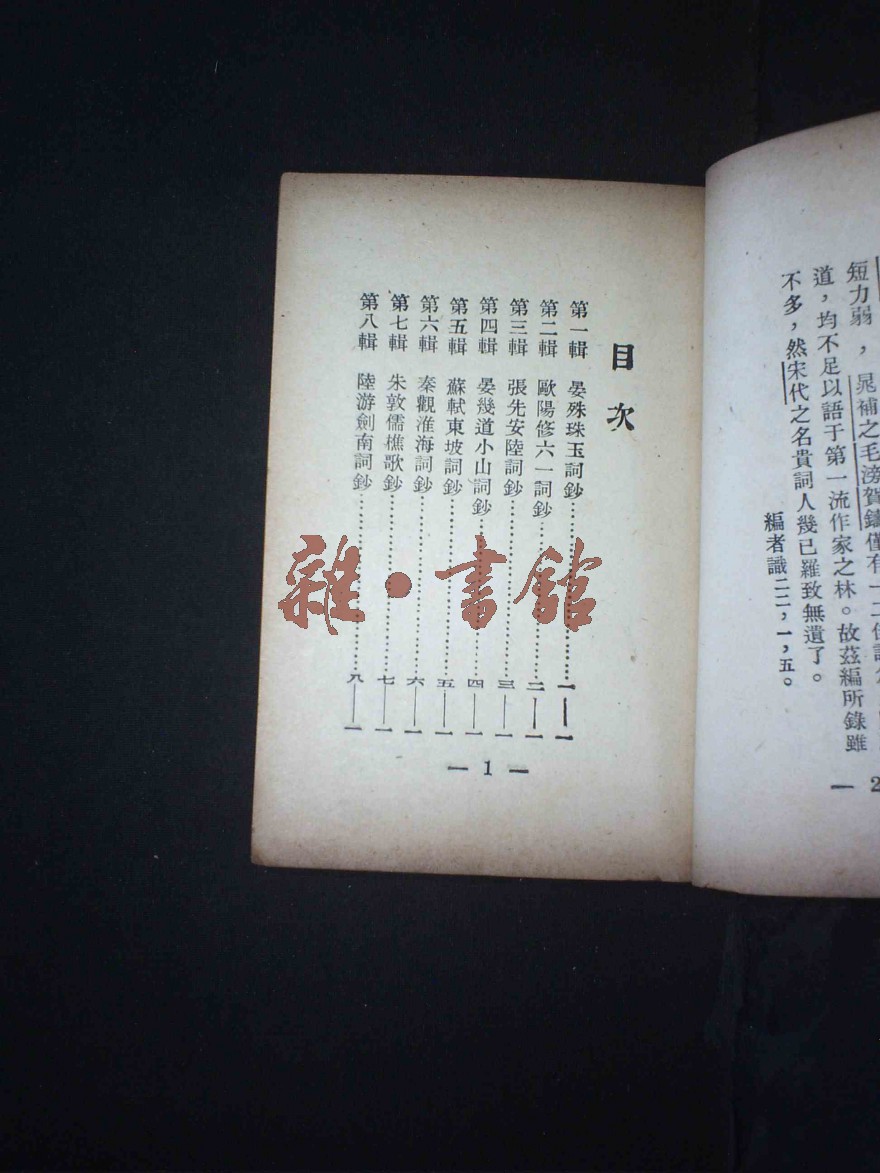 短力弱，晁補之毛滂賀鑄僅有一二佳
道，均不足以語于第一流作家之林。故茲編所錄雖
不多，然宋代之名貴詞人幾已羅致無遺了。
編者識二二，一，五。
2
目次
第一輯 晏殊珠玉詞鈔……一——一
第二輯 歐陽修六一詞鈔……二——一
第三輯 張先安陸詞鈔……三——一
第四輯 晏幾道小山詞鈔……四——一
第五輯 蘇軾東坡詞鈔……五——一
第六輯 秦觀淮海詞鈔……六——一
第七輯 朱敦儒樵歌鈔……七——一
第八輯 陸游劍南詞鈔……八——一
— 1 —
雜·書館